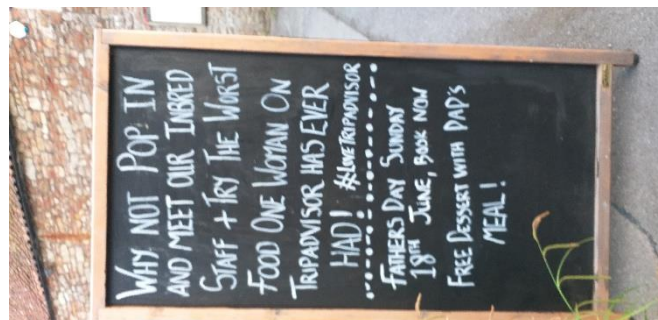 WHY NOT POP IN
AND MEET OUR INBRED
STAFF + TRY THE WORST
FOOD ONE WOMAN ON
TRIPADVISOR HAS EVER
HAD! #LOVETRIPADVISOR
FATHERS DAY SUNDAY
18TH JUNE, BOOK NOW
FREE DESSERT WITH DAD'S
MEAL!